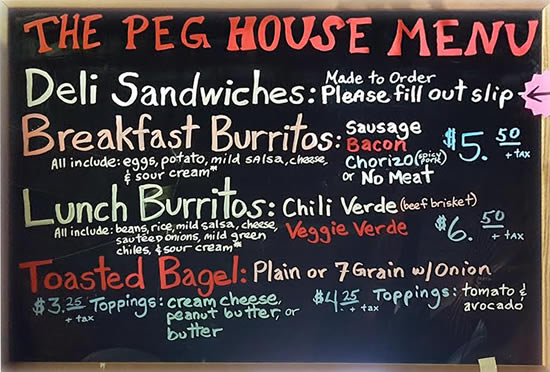 THE PEG HOUSE MENU
Deli Sandwiches: Made to Order
Please fill out slip
Breakfast Burritos: Sausage
Bacon
Chorizo (spicy pork)
or No Meat
$5.50 + tax
All include: eggs, potato, mild salsa, cheese,
& sour cream**
Lunch Burritos: Chili Verde (beef brisket)
Veggie Verde
$6.50 + tax
All include: beans, rice, mild salsa, cheese,
sauteed onions, mild green
chiles, & sour cream**
Toasted Bagel: Plain or 7 Grain w/Onion
$3.25 + tax Toppings: cream cheese,
peanut butter, or
butter
$4.25 + tax Toppings: tomato &
avocado